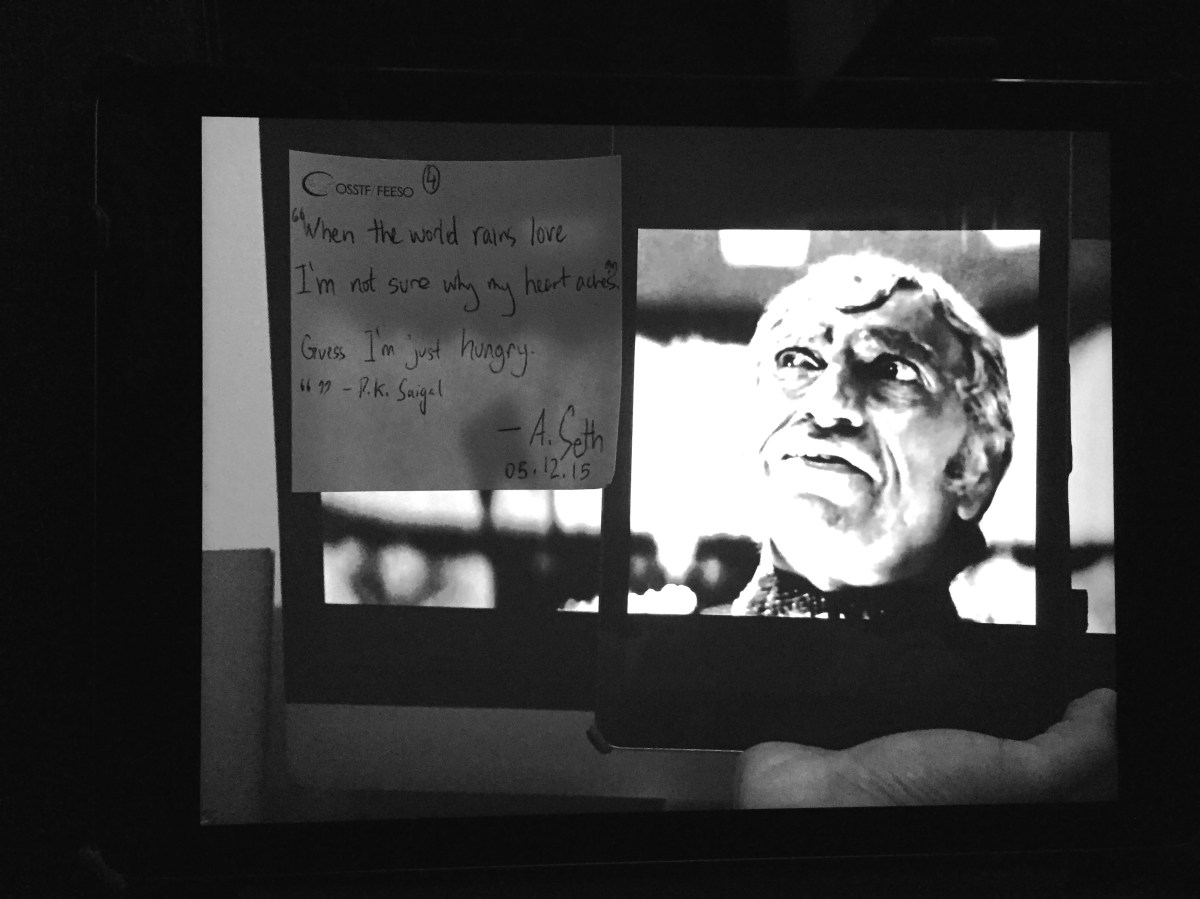 OSSTF FEESO 4
"When the world rains love
I'm not sure why my heart aches."
Guess I'm just hungry.
" " - P.K. Saigal
- A. Seth
05.12.15